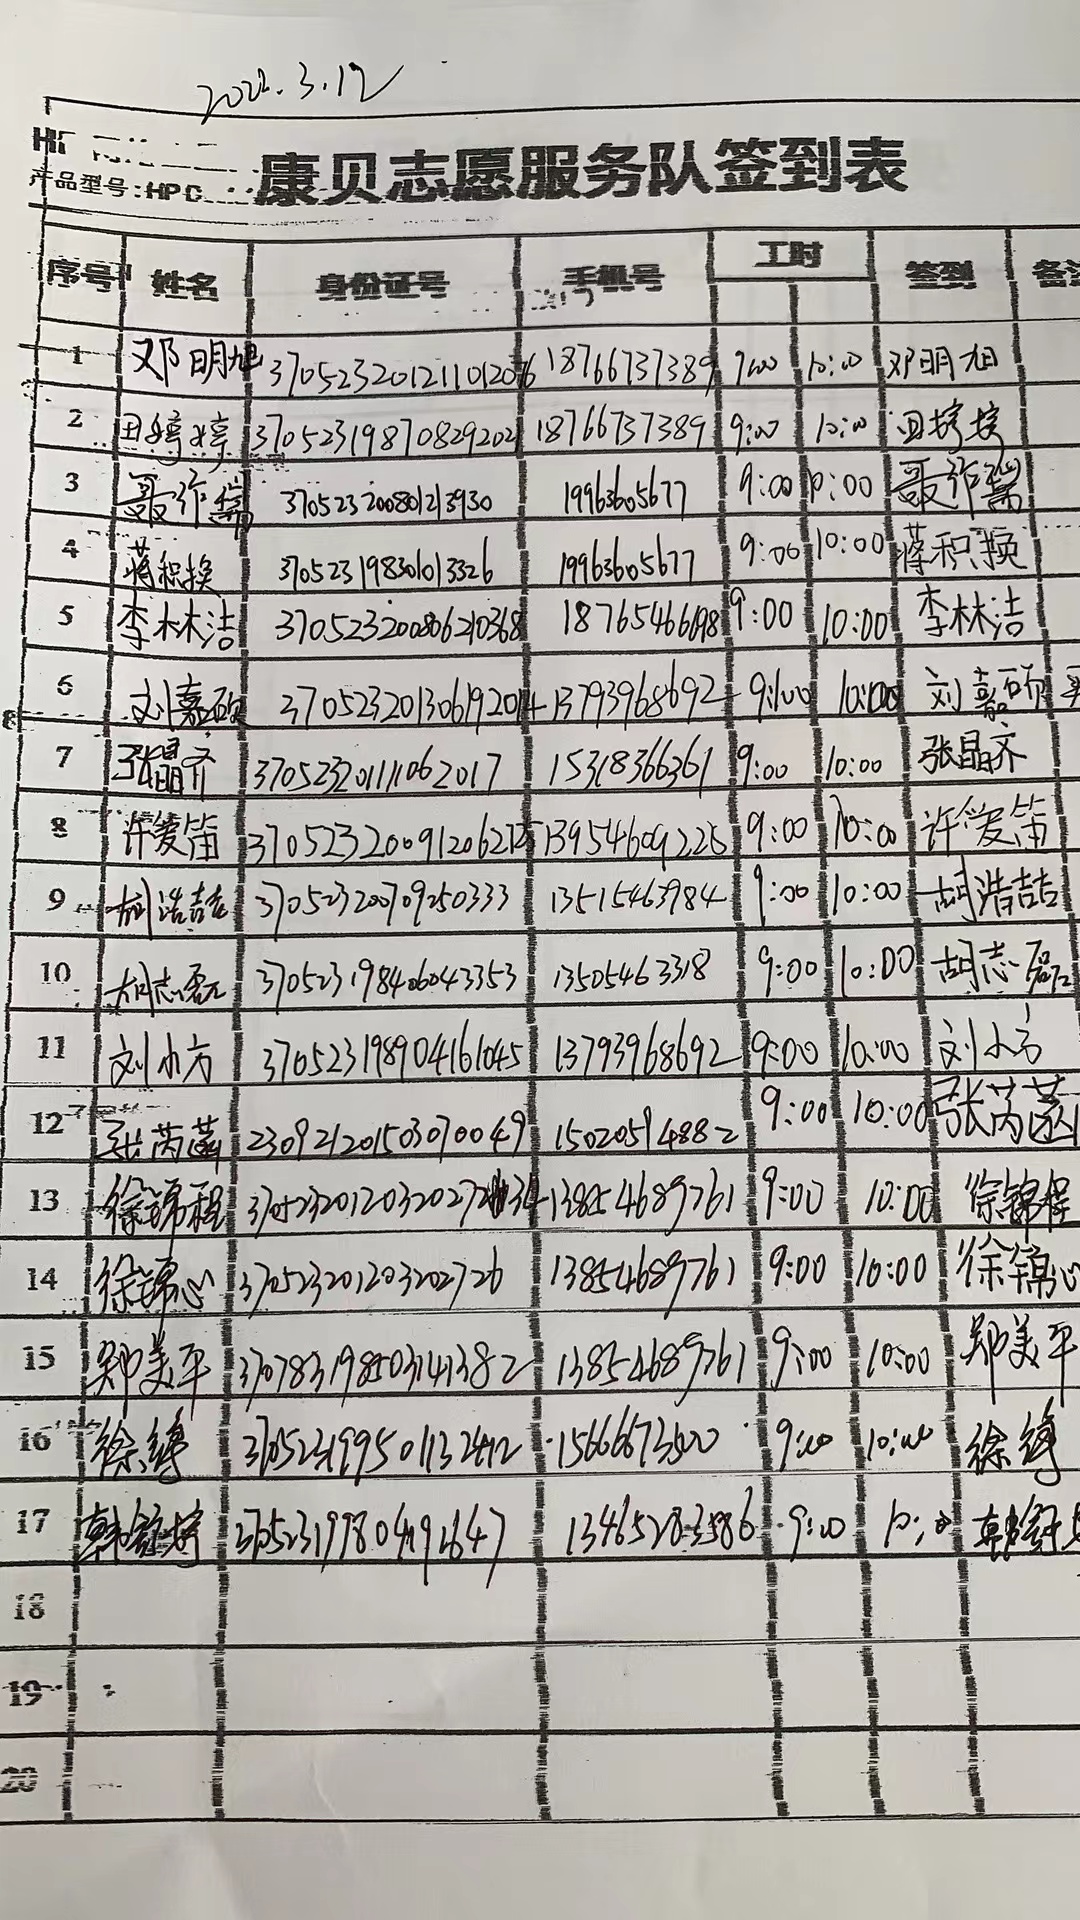 2022.3.12
产品型号:HPC
康贝志愿服务队签到表
序号 姓名 身份证号 手机号 工时 签到
1 邓明旭 18766737389 9:00 10:00 邓明旭
2 田婷婷 18766737389 9:00 10:00 田婷婷
3 370523200801213930 19963605677 9:00 10:00
4 蒋积换 370523198301013326 19963605677 9:00 10:00 蒋积换
5 李林洁 370523200806210368 18765466698 9:00 10:00 李林洁
6 刘嘉硕 370523201306192014 13793968692 9:00 10:00 刘嘉硕
7 张晶齐 370523201111062017 15318366361 9:00 10:00 张晶齐
8 许爱笛 13954609225 9:00 10:00 许爱笛
9 胡浩喆 370523200709250333 13515463984 9:00 10:00 胡浩喆
10 胡志磊 370523198406043353 13505463318 9:00 10:00 胡志磊
11 刘小方 370523198904161045 13793968692 9:00 10:00 刘小方
12 张芮菡 230921201503070049 15020594882 9:00 10:00 张芮菡
13 徐锦程 13854689761 9:00 10:00 徐锦程
14 徐锦心 370523201203202726 13854689761 9:00 10:00 徐锦心
15 郑美平 370783198503141382 13854689761 9:00 10:00 郑美平
16 370523199501132412 15666673500 9:00 10:00
17 370523199804191647 13465283586 9:00 10:00
18
19
20